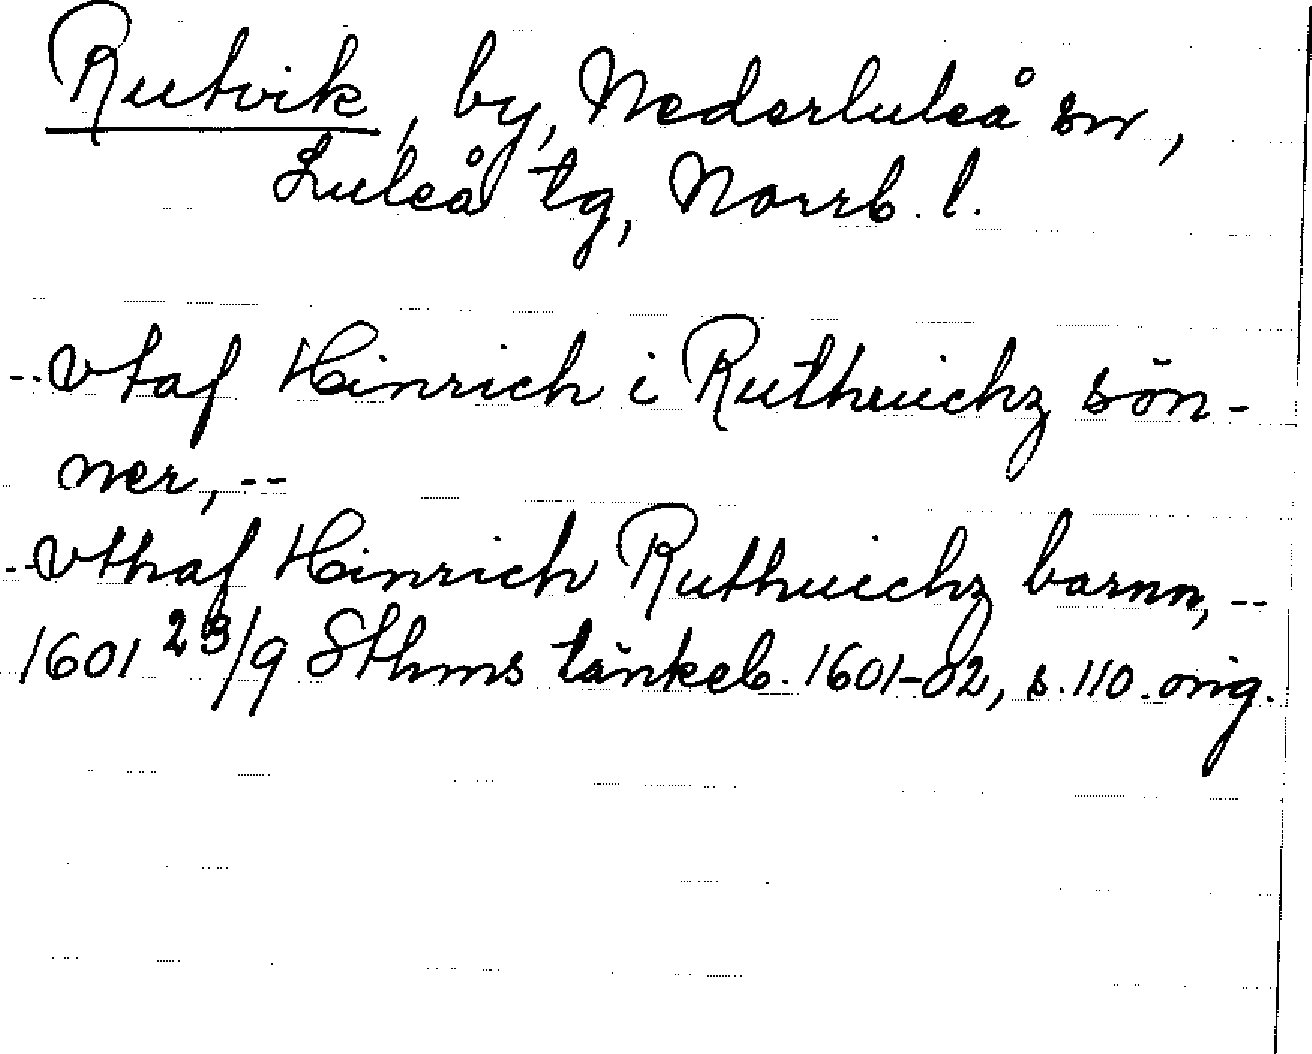 Rutvik, by, Nederluleå sn,
Luleå tg, Norrb. l.
--vtaf Hinrich i Ruthuichz sön-
ner, --
--vthaf Hinrich Ruthuichz barnn, --
1601 23/9 Sthms tänkeb. 1601-02, s. 110 orig.